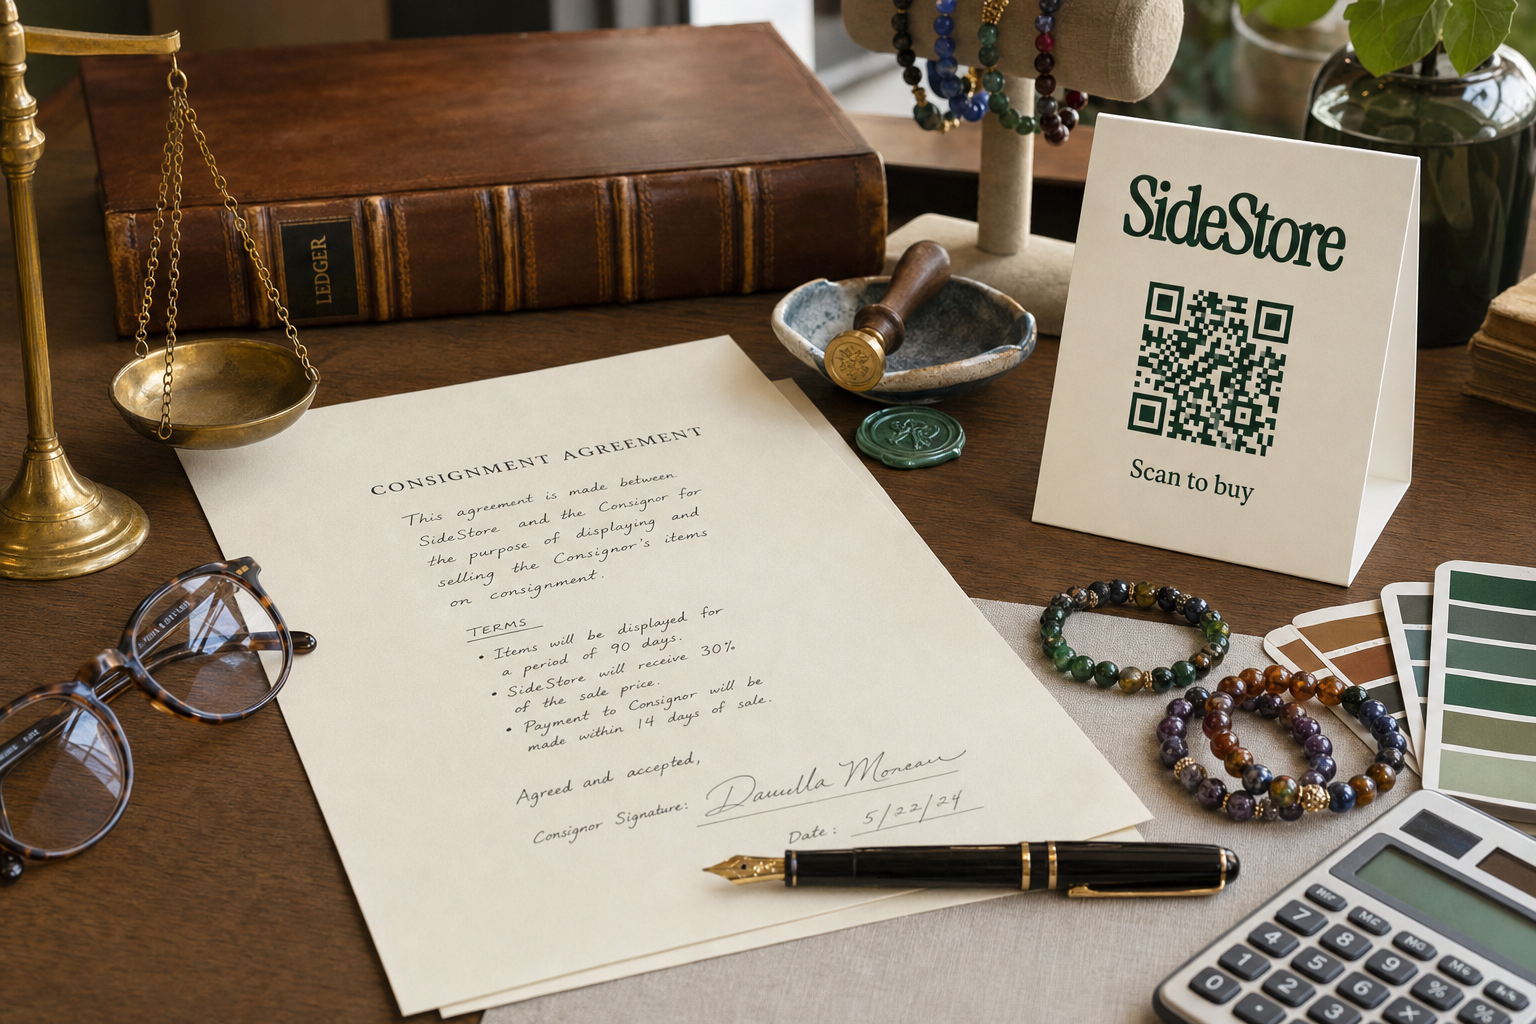 LEDGER
SideStore
Scan to buy
CONSIGNMENT AGREEMENT
This agreement is made between
SideStore and the Consignor for
the purpose of displaying and
selling the Consignor's items
on consignment.
TERMS
• Items will be displayed for
a period of 90 days.
• SideStore will receive 30%
of the sale price.
• Payment to Consignor will be
made within 14 days of sale.
Agreed and accepted,
Consignor Signature: Danulla Moreau
Date: 5/22/24
7 8 9 %
4 5 6
1 2 3 ×
0 .